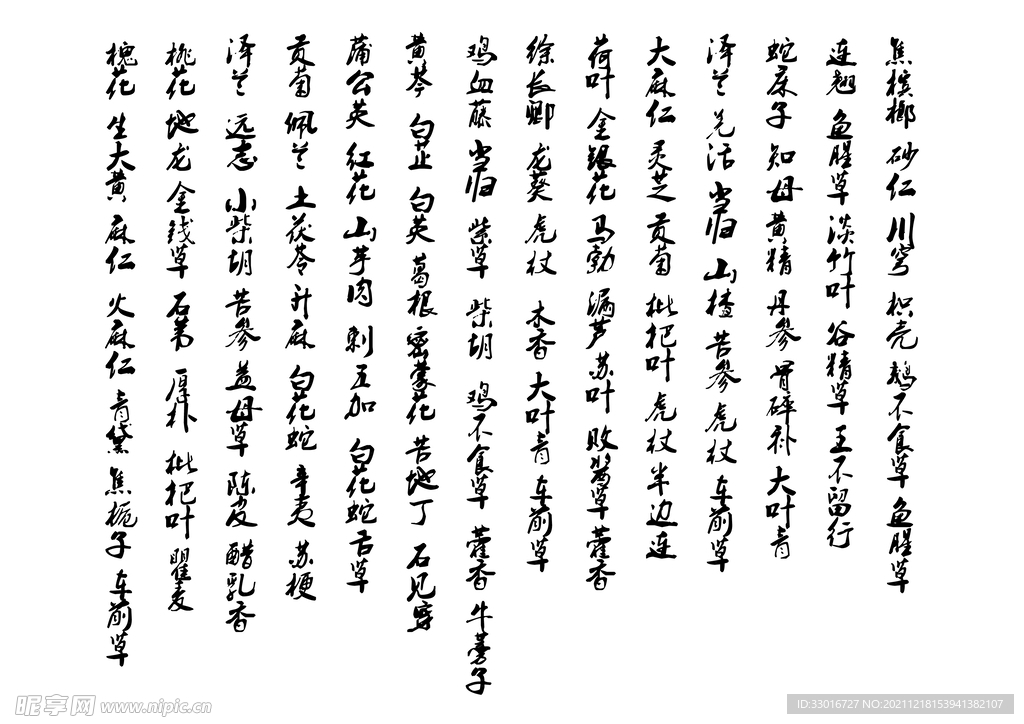 焦槟榔 砂仁 川穹 枳壳 鹅不食草 鱼腥草
连翘 鱼腥草 淡竹叶 谷精草 王不留行
蛇床子 知母 黄精 丹参 骨碎补 大叶青
泽兰 羌活 当归 山楂 苦参 虎杖 车前草
大麻仁 灵芝 贡菊 枇杷叶 虎杖 半边连
荷叶 金银花 马勃 漏芦 苏叶 败酱草 藿香
徐长卿 龙葵 虎杖 木香 大叶青 车前草
鸡血藤 当归 紫草 柴胡 鸡不食草 藿香 牛蒡子
黄芩 白芷 白英 葛根 密蒙花 苦地丁 石见穿
蒲公英 红花 山芋肉 刺五加 白花蛇舌草
贡菊 佩兰 土茯苓 升麻 白花蛇 辛夷 苏梗
泽兰 远志 小柴胡 苦参 益母草 陈皮 醋乳香
桃花 地龙 金钱草 石苇 厚朴 枇杷叶 瞿麦
槐花 生大黄 麻仁 火麻仁 青黛 焦栀子 车前草
昵享网 www.nipic.cn
ID:33016727 NO:20211218153941382107